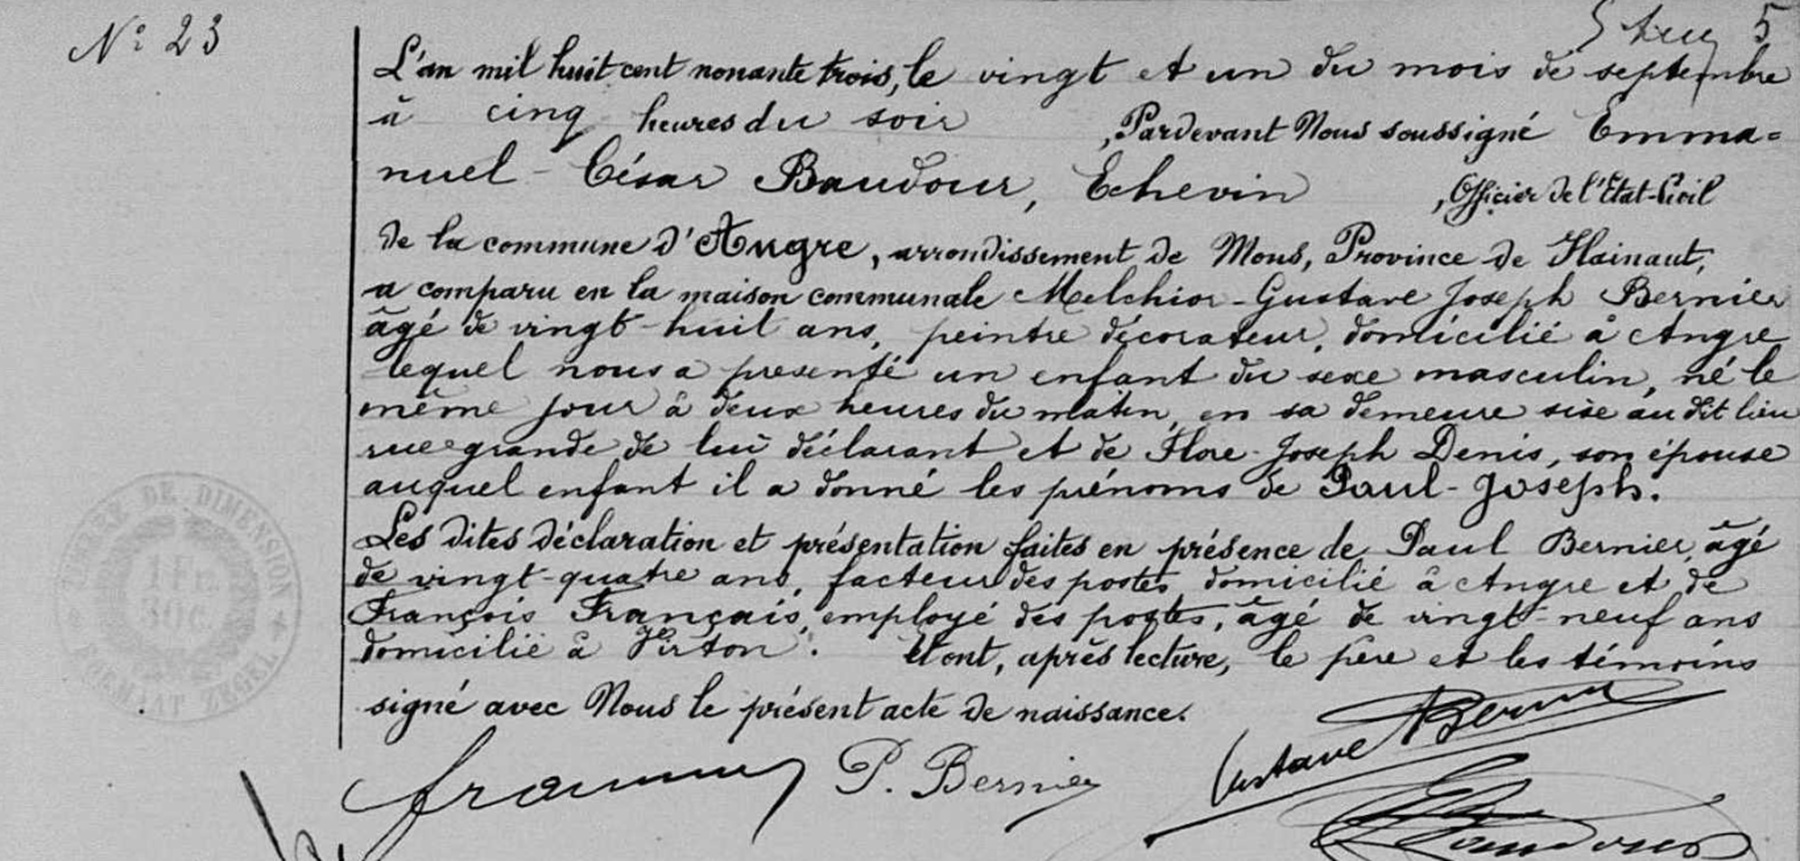 N° 23
5
L'an mil huit cent nonante trois, le vingt et un du mois de septembre
à cinq heures du soir , Pardevant Nous soussigné Emma=
nuel - César Baudour, Echevin , Officier de l'Etat-Civil
de la commune d'Angre, arrondissement de Mons, Province de Hainaut,
a comparu en la maison communale Melchior - Gustave Joseph Bernier
âgé de vingt-huit ans, peintre décorateur, domicilié à Angre
lequel nous a présenté un enfant du sexe masculin, né le
même jour à deux heures du matin, en sa demeure sise au dit lieu
rue grande de lui déclarant et de Flore-Joseph Denis, son épouse
auquel enfant il a donné les prénoms de Paul-Joseph.
Les dites déclaration et présentation faites en présence de Paul Bernier, âgé
de vingt-quatre ans, facteur des postes domicilié à Angre et de
François Français, employé des postes, âgé de vingt-neuf ans
domicilié à Virton. Et ont, après lecture, le père et les témoins
signé avec Nous le présent acte de naissance.
TIMBRE DE DIMENSION
1 Fr.
30c.
FORMAAT ZEGEL
P. Bernier
Gustave Bernier
Baudour